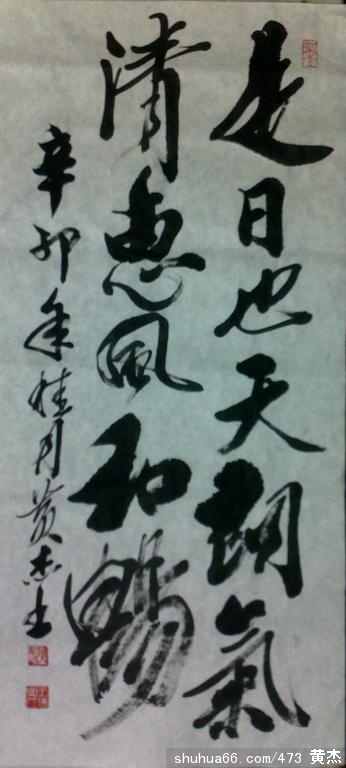 是日也天朗氣
清惠風和暢
辛卯年桂月黄杰书
shuhua66.com/473 黄杰